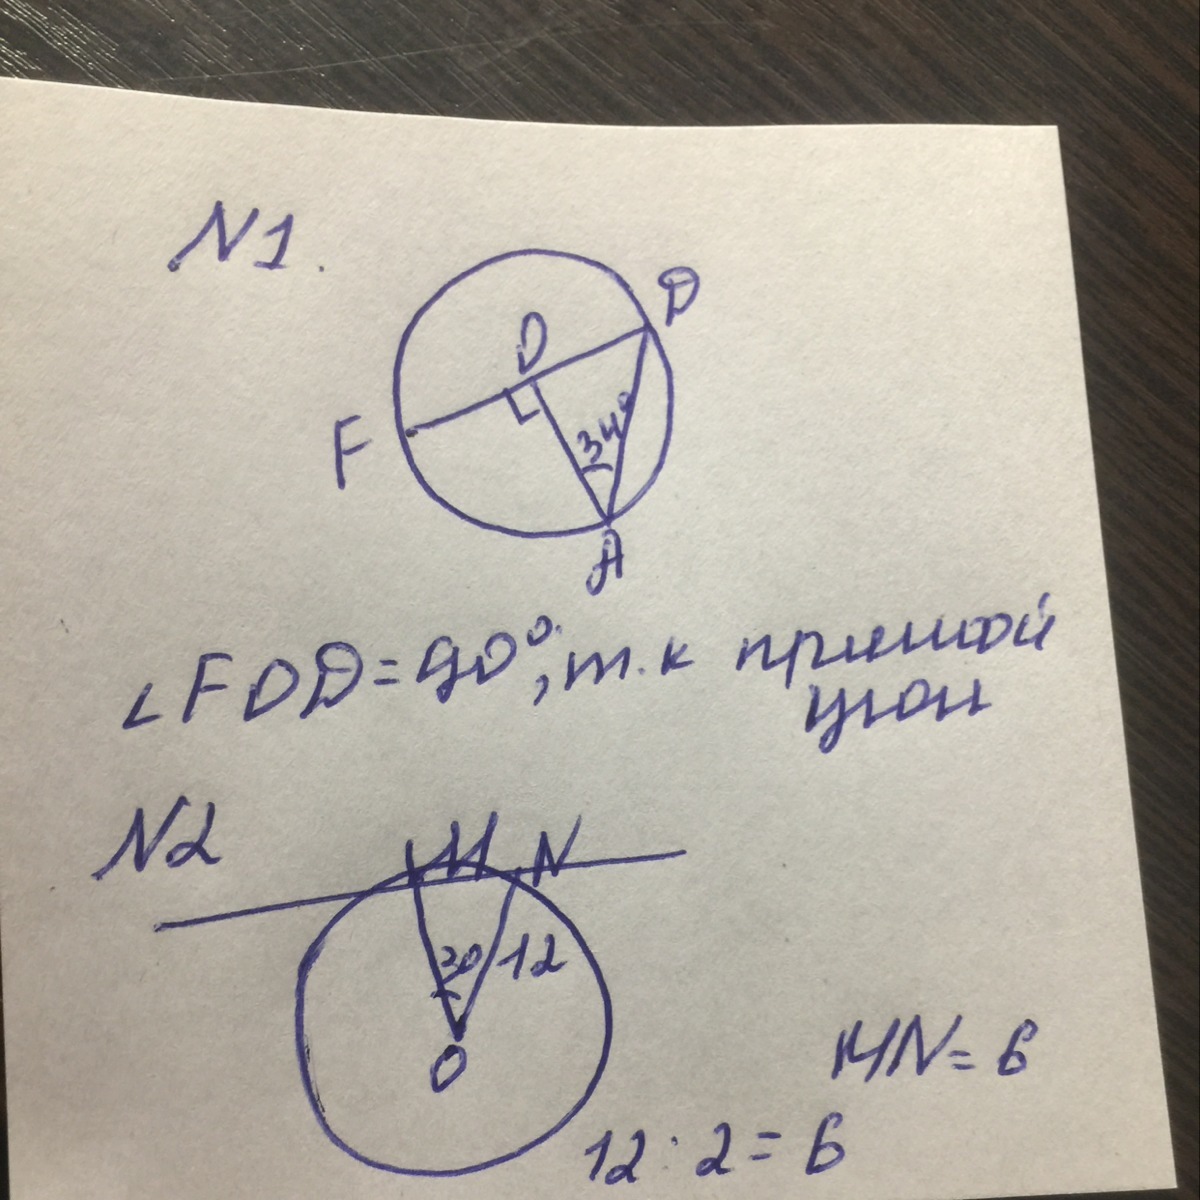 N1.
D
O
F
34°
A
∠FOD=90°, т.к прямой
угол
N2
M N
30 12
O
MN=6
12:2=6